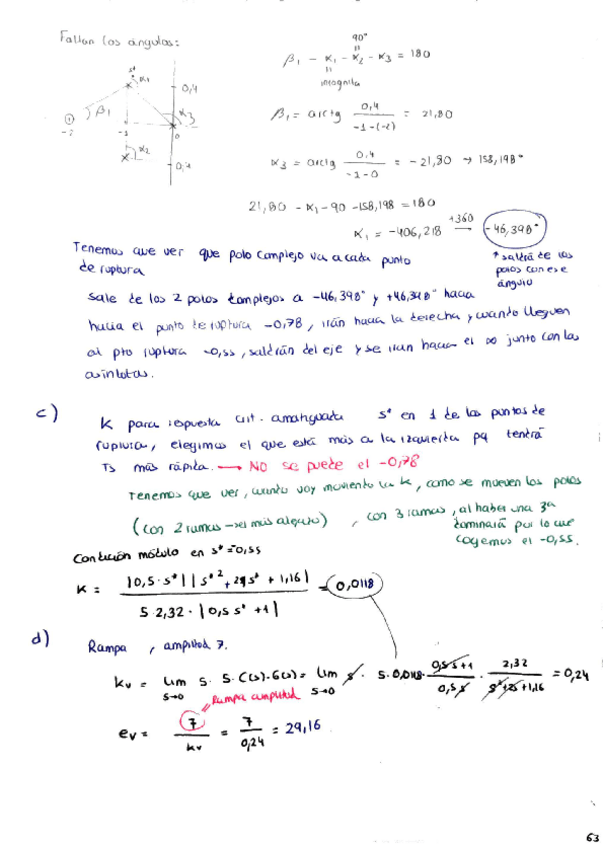 Faltan los ángulos:
90°
"
β₁ - α₁ - α₂ - α₃ = 180
"
incognita
s*
α₁
0,4
β₁
α₃
-2
-1
0
α₂
0,4
β₁ = arctg 0,4 / -1-(-2) = 21,80
α₃ = arctg 0,4 / -1-0 = -21,80 → 158,198°
21,80 - α₁ - 90 - 158,198 = 180
α₁ = -406,218 +360 → -46,398°
* saldrá de los
polos con ese
ángulo
Tenemos que ver que polo complejo va a cada punto
de ruptura
Sale de los 2 polos complejos a -46,398° y +46,398° hacia
hacia el punto de ruptura -0,78, irán hacia la derecha y cuando lleguen
al pto ruptura -0,55, saldrán del eje y se iran hacia el ∞ junto con las
asintotas.
c)
K para respuesta crit. amortiguada s* en 1 de los puntos de
ruptura, elegimos el que está más a la izquierda pq tendrá
Ts más rápida. → NO se puede el -0,78
Tenemos que ver, cuando voy moviento la K, como se mueven los polos
(con 2 ramas → el más alejado), con 3 ramas, al haber una 3ª
dominará por lo que
cogemos el -0,55.
Condición módulo en s* = 0,55
K = |0,5·s*| |s*² + 2s* + 1,16| / 5·2,32·|0,5s* + 1| = 0,0118
d)
Rampa, amplitud 7.
Kv = lim s→0 s·5·C(s)·G(s) = lim s→0 s · 5·0,0118· 0,5s+1 / 0,5s · 2,32 / s²+2s+1,16 = 0,24
Rampa amplitud
ev = 7 / Kv = 7 / 0,24 = 29,16
63